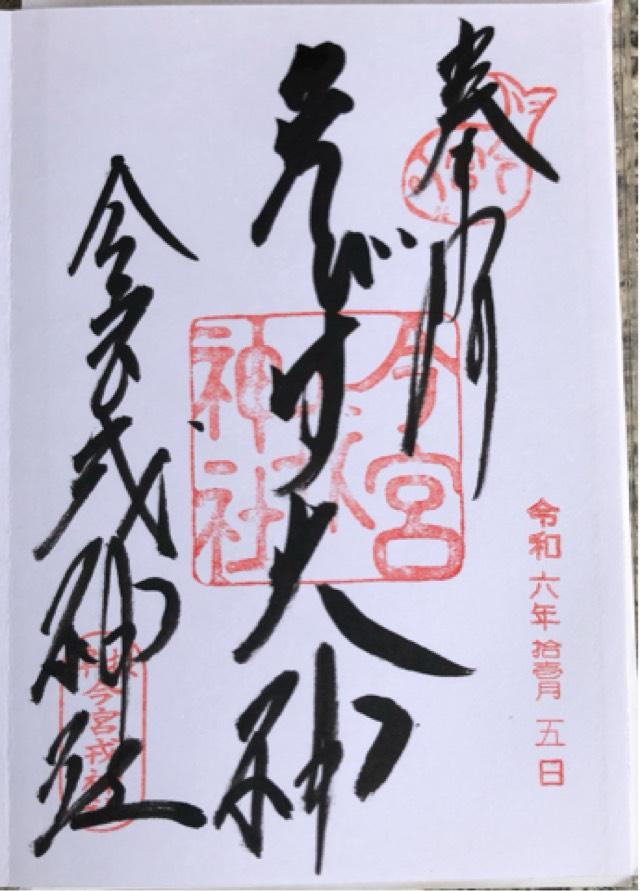 奉拝
えびす大神
今宮戎神社
今宮戎神社
令和六年拾壱月五日